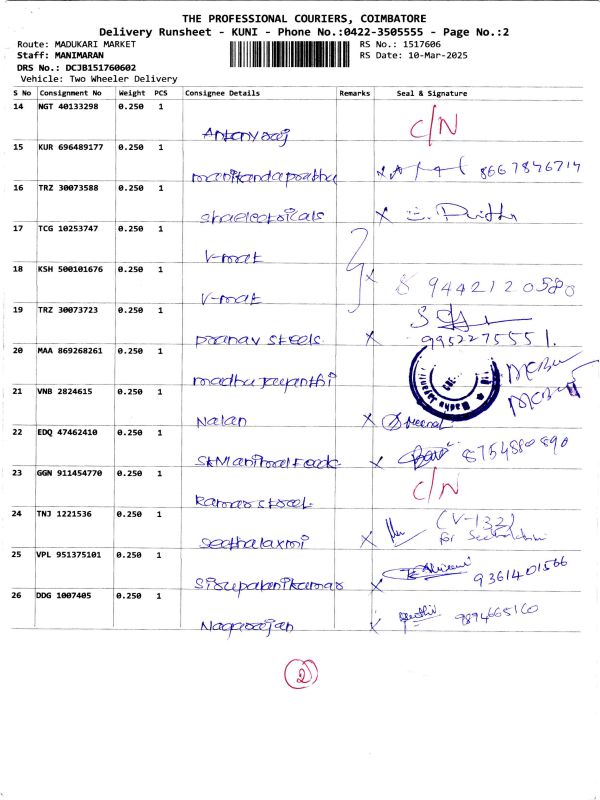 THE PROFESSIONAL COURIERS, COIMBATORE
Delivery Runsheet - KUNI - Phone No.:0422-3505555 - Page No.:2
Route: MADUKARI MARKET RS No.: 1517606
Staff: MANIMARAN RS Date: 10-Mar-2025
DRS No.: DCJB151760602
Vehicle: Two Wheeler Delivery
S No Consignment No Weight PCS Consignee Details Remarks Seal & Signature
14 NGT 40133298 0.250 1
Antony raj C/N
15 KUR 696489177 0.250 1
manikanda prabhu x 8667846714
16 TRZ 30073588 0.250 1
x
17 TCG 10253747 0.250 1
V-mat
18 KSH 500101676 0.250 1
V-mat x 9442120580
19 TRZ 30073723 0.250 1
pranav steels x 9952275551.
20 MAA 869268261 0.250 1
madhu jayanthi
21 VNB 2824615 0.250 1
Nalan x
22 EDQ 47462410 0.250 1
x 8754880890
23 GGN 911454770 0.250 1
C/N
24 TNJ 1221536 0.250 1
seethalaxmi x (V-132)
for
25 VPL 951375101 0.250 1
x 9361401566
26 DDG 1007405 0.250 1
Nagarajan x 9894665160
2